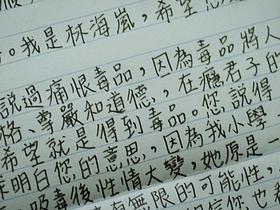 。我是林海嵐，希望您
說過痛恨毒品，因為毒品將人
格、尊嚴和道德，在癮君子的
希望就是得到毒品。您說得
明白您的意思，因為我小學一
吸毒後性情大變，她原是一
有無限的可能性，